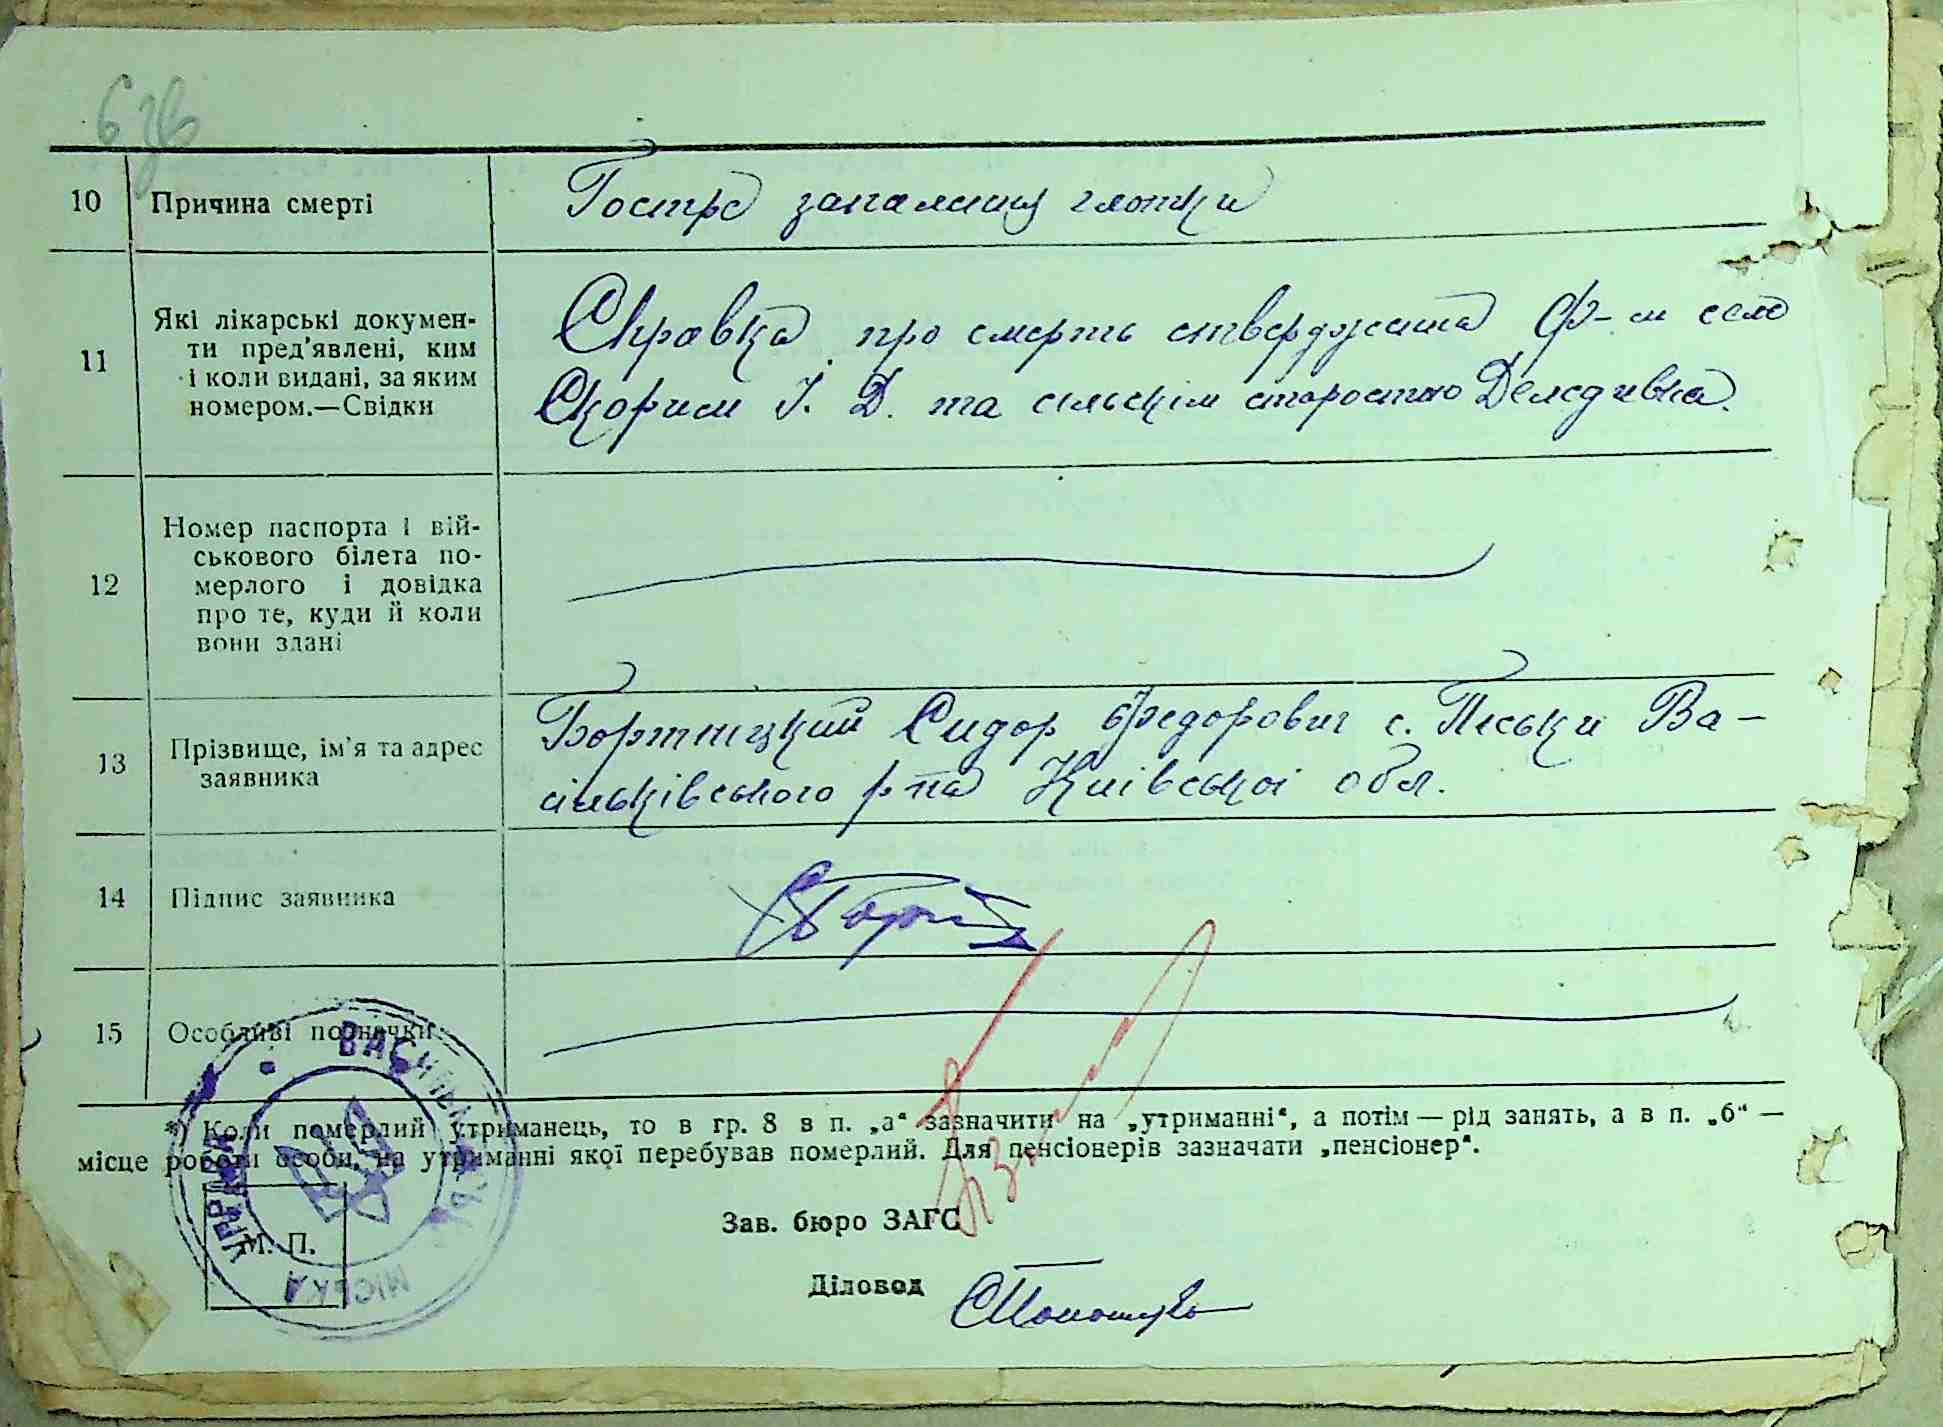 6 зв
10 Причина смерті Гостре запалення глотки
11 Які лікарські докумен-
ти пред'явлені, ким
і коли видані, за яким
номером.—Свідки
Справка про смерть стверджена ф-м село
Скорим І. Д. та сільскім старостою
12 Номер паспорта і вій-
ськового білета по-
мерлого і довідка
про те, куди й коли
вони здані
13 Прізвище, ім'я та адрес
заявника
Бортніцкий Сидор Федорович с. Піськи Ва-
сільківського р-на Київської обл.
14 Підпис заявника
15 Особливі позначки:
*) Коли померлий утриманець, то в гр. 8 в п. „а“ зазначити на „утриманні“, а потім — рід занять, а в п. „б“ —
місце роботи особи, на утриманні якої перебував померлий. Для пенсіонерів зазначати „пенсіонер“.
Зав. бюро ЗАГС
М. П.
Діловод
ВАСИЛЬКІВСЬКА МІСЬКА УПРАВА